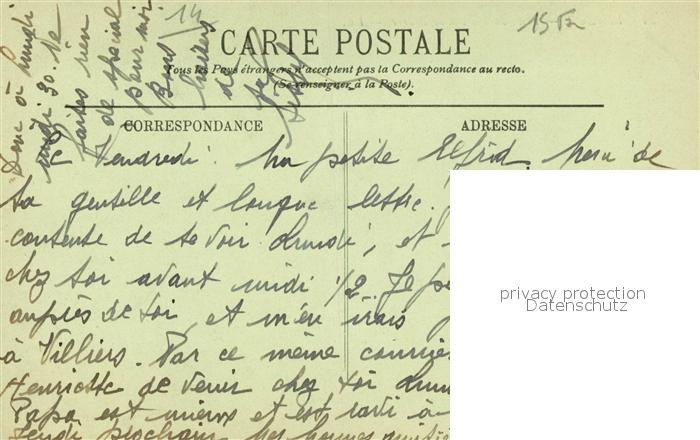 14
15 Fr
CARTE POSTALE
Tous les Pays étrangers n'acceptent pas la Correspondance au recto.
(Se renseigner à la Poste).
CORRESPONDANCE
ADRESSE
Donc à lundi
midi 30. Ne
faites rien
de spécial
pour moi
Bons
baisers
de
Ce Vendredi. Ma petite Elfrid. Merci de
ta gentille et longue lettre.
contente de te voir lundi, et
chez toi avant midi 1/2. Je
auprès de toi, et m'en irais
à Villiers. Par ce même courrier
Henriette de venir chez toi
Papa est mieux et est ravi à
Jeudi prochain.
privacy protection
Datenschutz